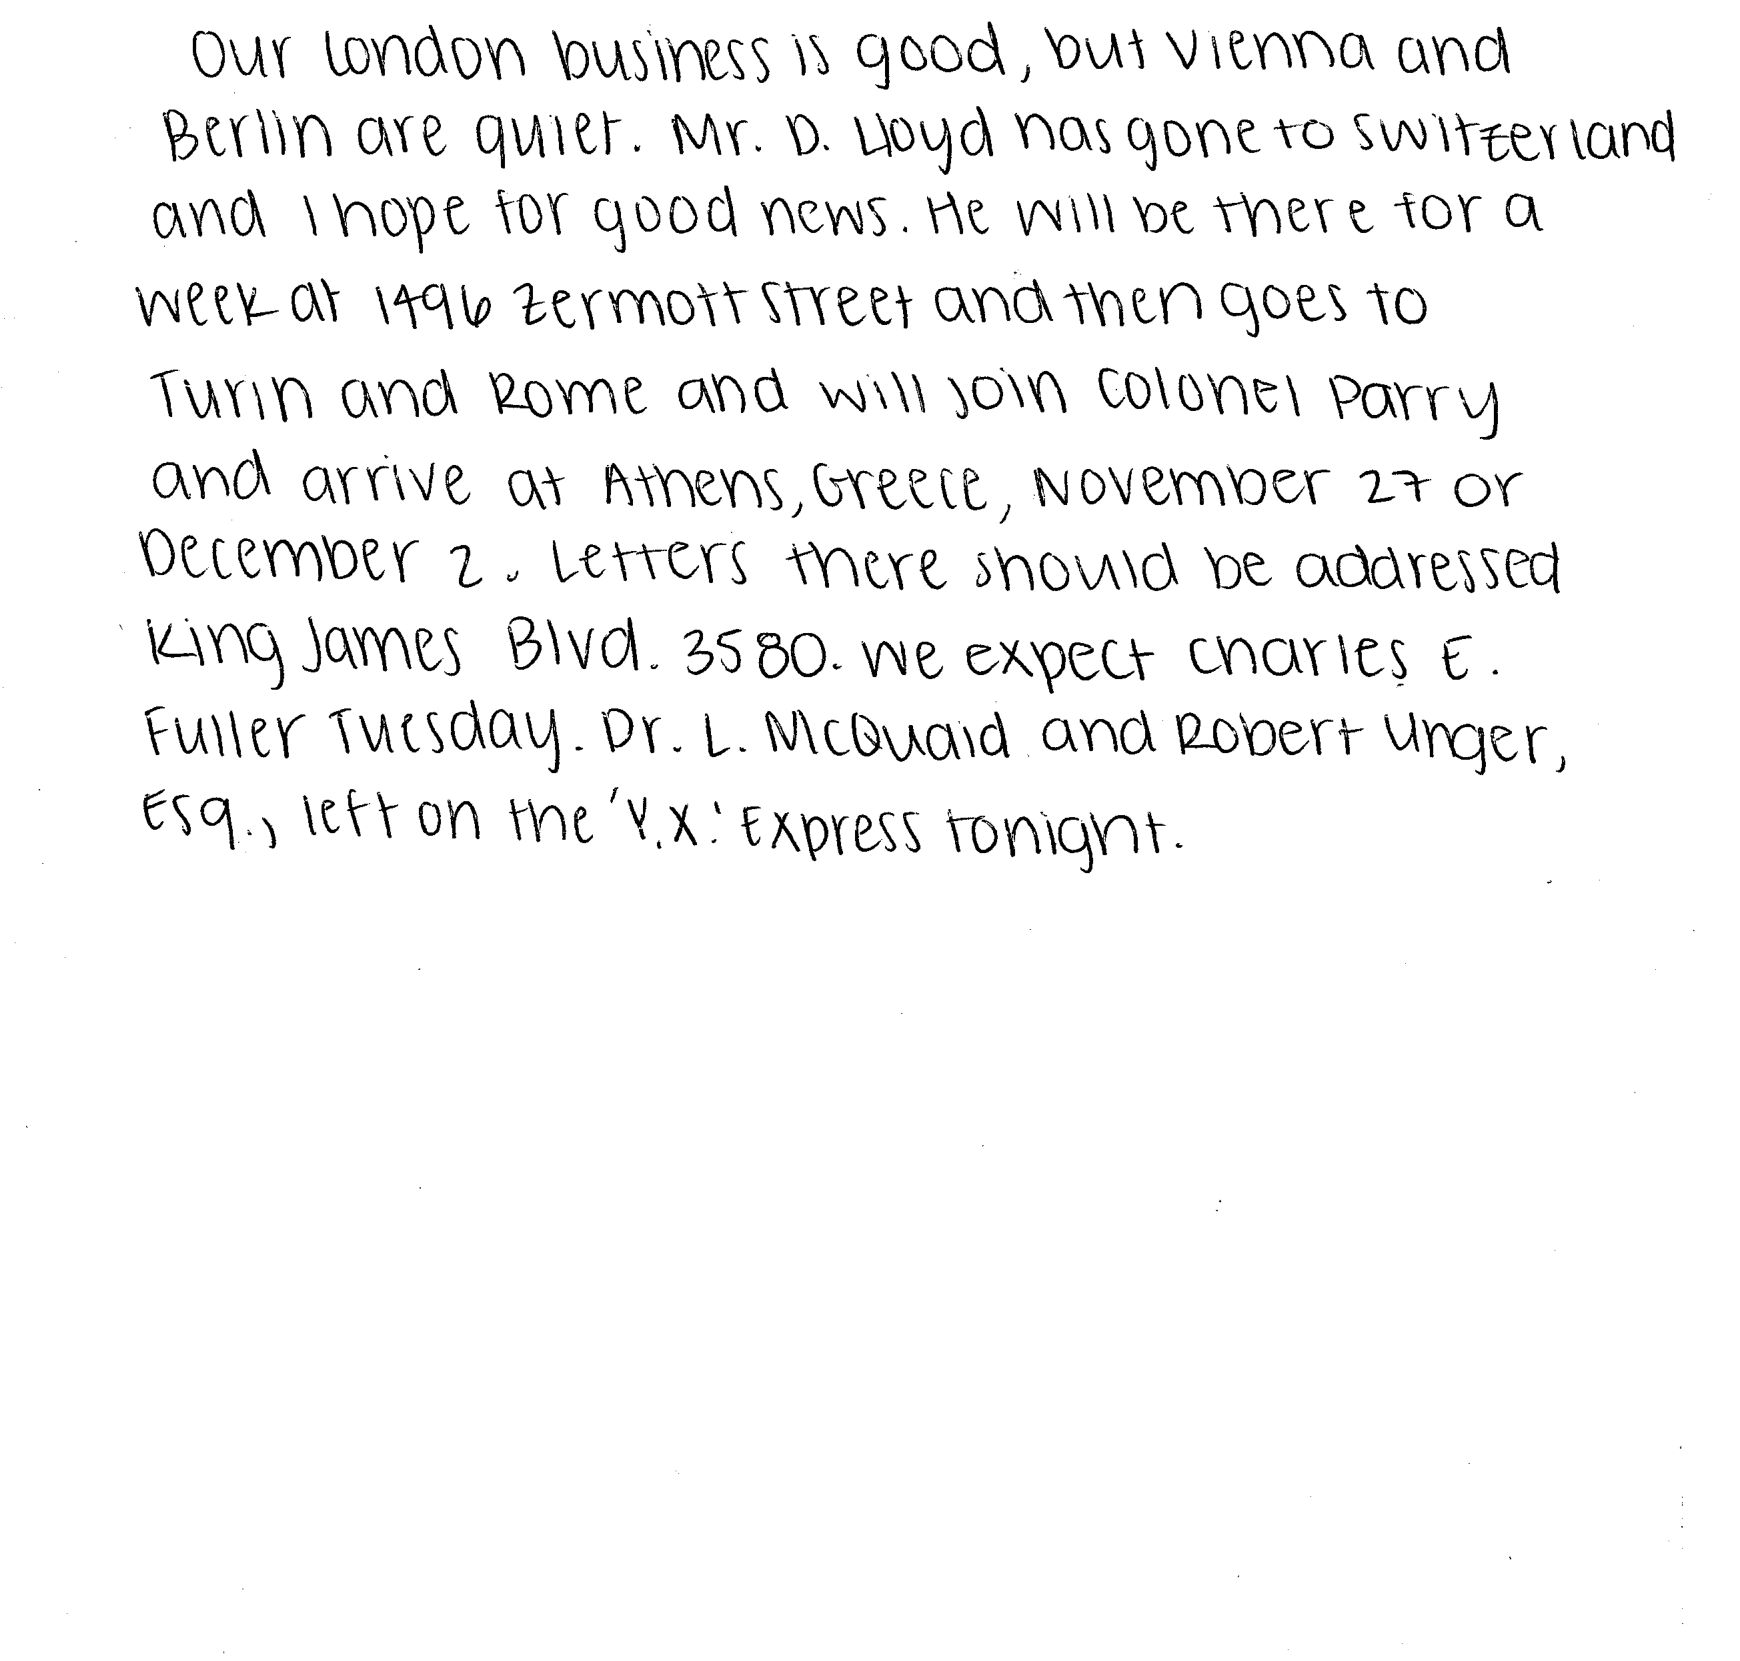 Our London business is good, but Vienna and
Berlin are quiet. Mr. D. Lloyd has gone to Switzerland
and I hope for good news. He will be there for a
week at 1496 Zermott Street and then goes to
Turin and Rome and will join Colonel Parry
and arrive at Athens, Greece, November 27 or
December 2. Letters there should be addressed
King James Blvd. 3580. We expect Charles E.
Fuller Tuesday. Dr. L. McQuaid and Robert Unger,
Esq., left on the 'Y.X.' Express tonight.